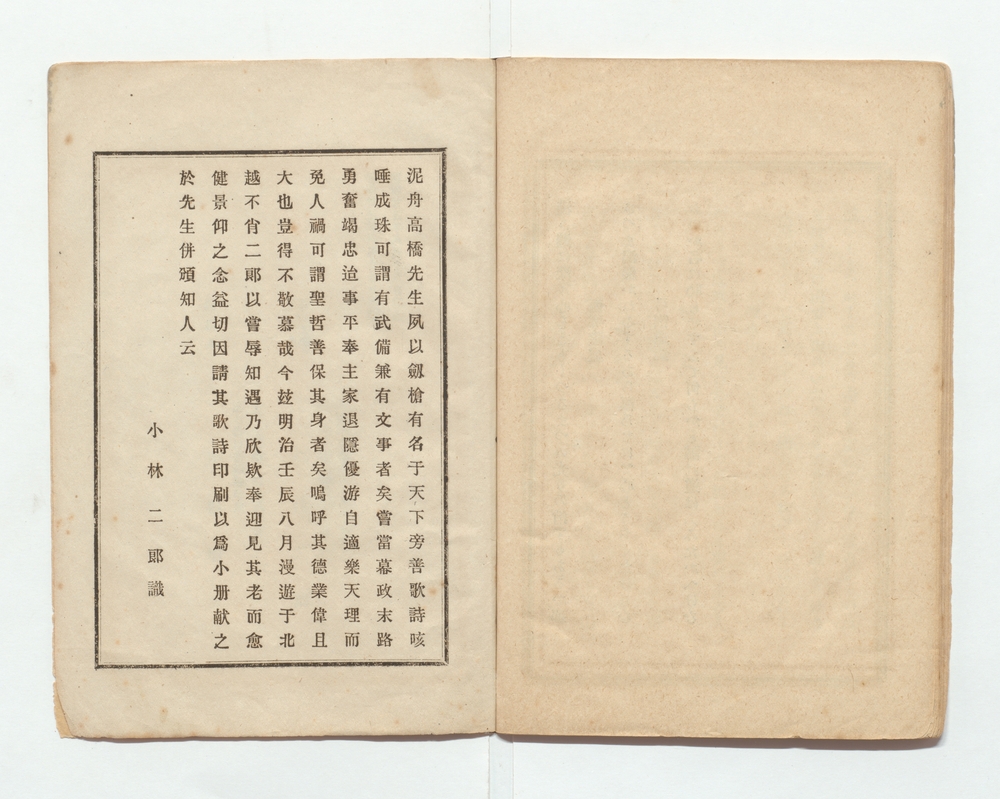 泥舟高橋先生夙以劔槍有名于天下旁善歌詩咳
唾成珠可謂有武備兼有文事者矣嘗當幕政末路
勇奮竭忠迨事平奉主家退隱優游自適樂天理而
免人禍可謂聖哲善保其身者矣嗚呼其德業偉且
大也豈得不敬慕哉今玆明治壬辰八月漫遊于北
越不肖二郞以嘗辱知遇乃欣欵奉迎見其老而愈
健景仰之念益切因請其歌詩印刷以爲小册献之
於先生併頒知人云
小林二郞識